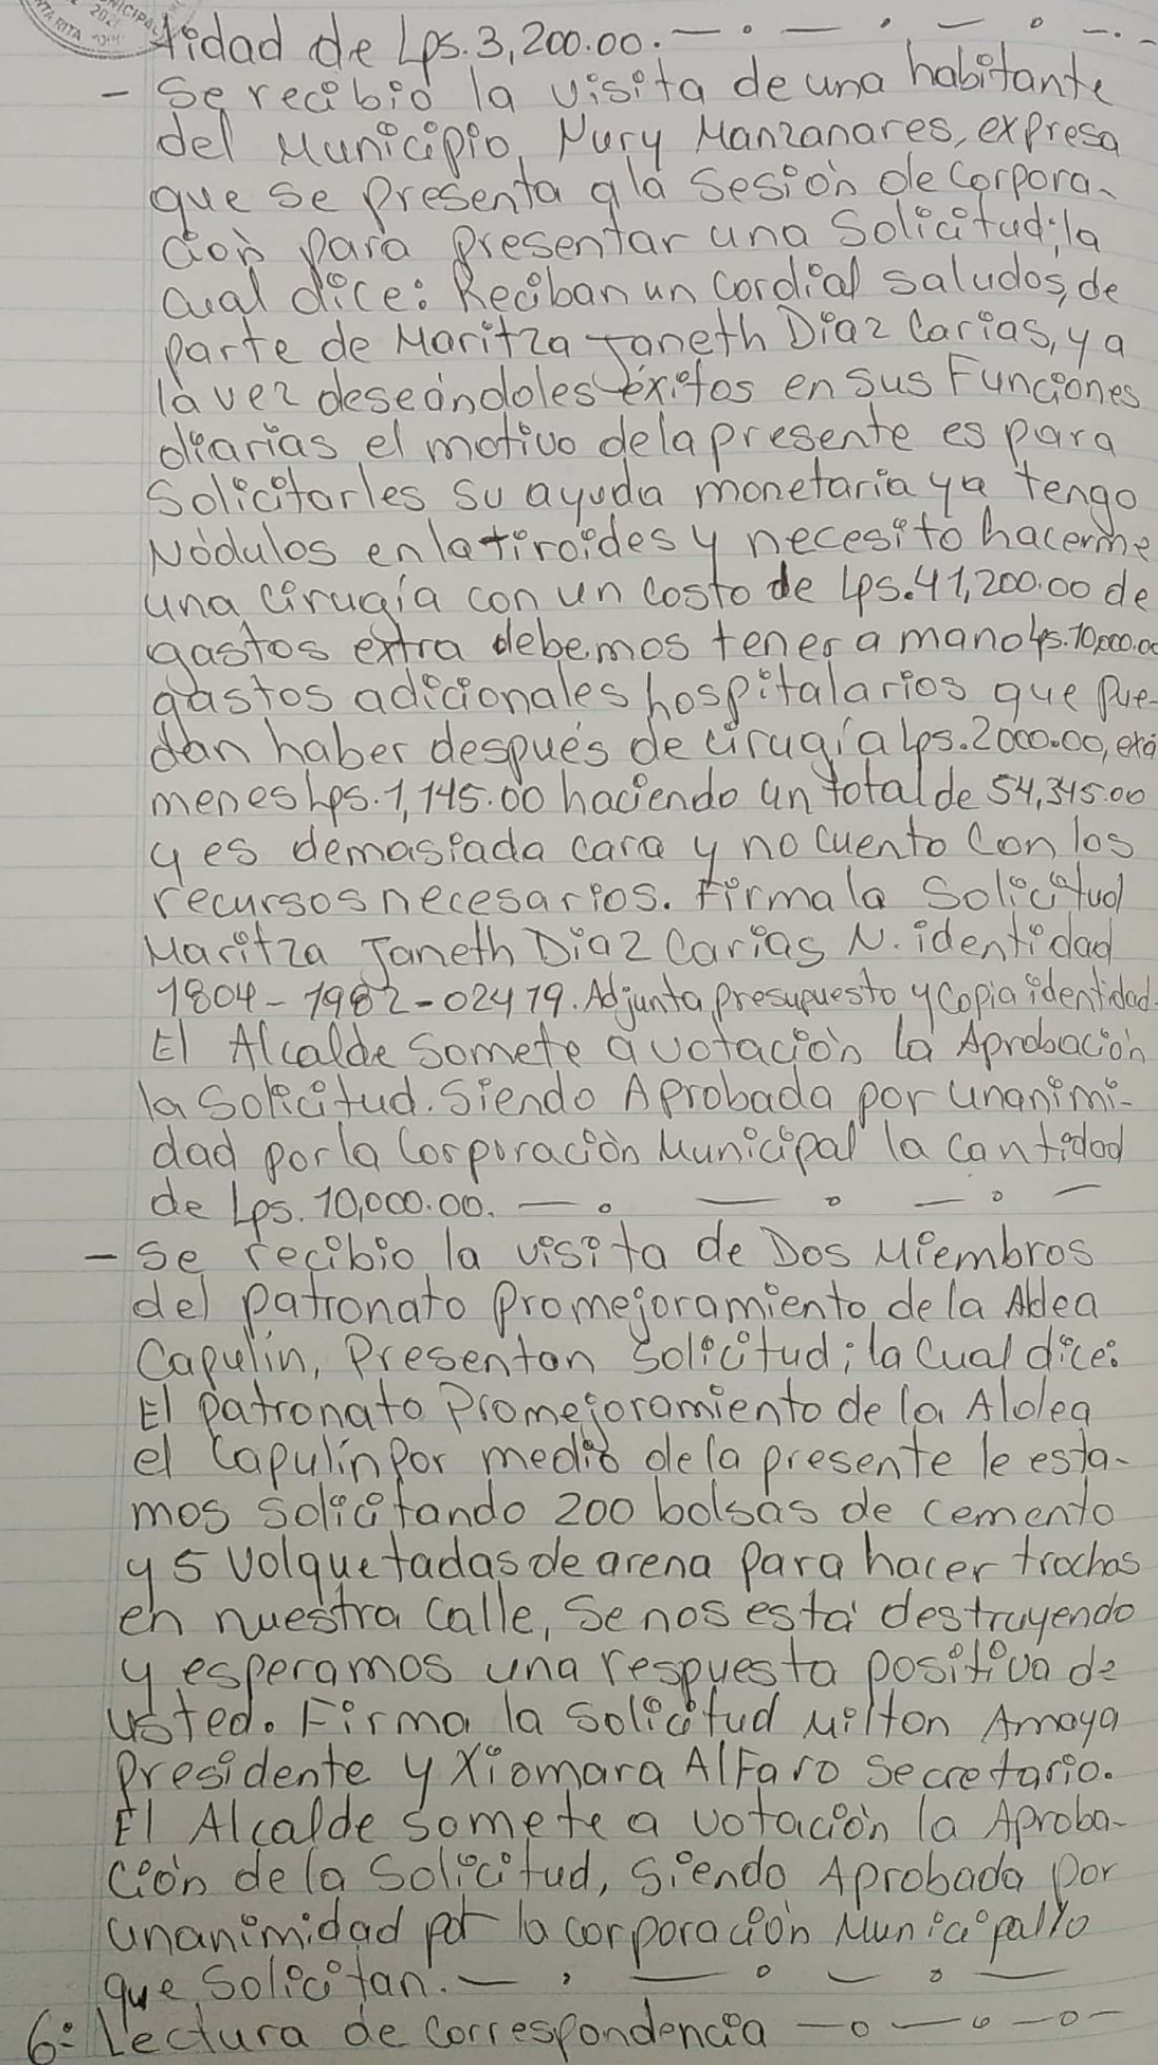 NICIPAL
2021
NTA RITA
tidad de Lps. 3,200.00. — . — . — . — . -
- Se recibio la visita de una habitante
del Municipio, Nury Manzanares, expresa
que se presenta a la Sesión de Corpora-
ción para presentar una Solicitud; la
cual dice: Reciban un Cordial saludos, de
parte de Maritza Janeth Diaz Carias, y a
la vez deseándoles éxitos en sus Funciones
diarias el motivo de la presente es para
Solicitarles su ayuda monetaria ya tengo
Nódulos en la tiroides y necesito hacerme
una Cirugía con un Costo de Lps. 41,200.00 de
gastos extra debemos tener a mano Lps. 10,000.00
gastos adicionales hospitalarios que Pue-
dan haber después de cirugía Lps. 2000.00, exá
menes Lps. 1,145.00 haciendo un total de 54,345.00
y es demasiada cara y no cuento Con los
recursos necesarios. Firma la Solicitud
Maritza Janeth Diaz Carias N. identidad
1804-1982-02419. Adjunta presupuesto y Copia identidad.
El Alcalde Somete a votación la Aprobación
la Solicitud. Siendo Aprobada por unanimi-
dad por la Corporación Municipal la cantidad
de Lps. 10,000.00. — . — . — . —
- Se recibio la visita de Dos Miembros
del patronato Promejoramiento de la Aldea
Capulin, Presentan Solicitud; la Cual dice:
El patronato Promejoramiento de la Aldea
el Capulín Por medio de la presente le esta-
mos Solicitando 200 bolsas de cemento
y 5 Volquetadas de arena para hacer trochas
en nuestra Calle, Se nos está destruyendo
y esperamos una respuesta positiva de
usted. Firma la Solicitud Milton Amaya
Presidente y Xiomara Alfaro Secretario.
El Alcalde somete a votación la Aproba-
ción de la Solicitud, Siendo Aprobada por
unanimidad por la corporación Municipal lo
que Solicitan. — , — . — . —
6: Lectura de Correspondencia — o — o — o —